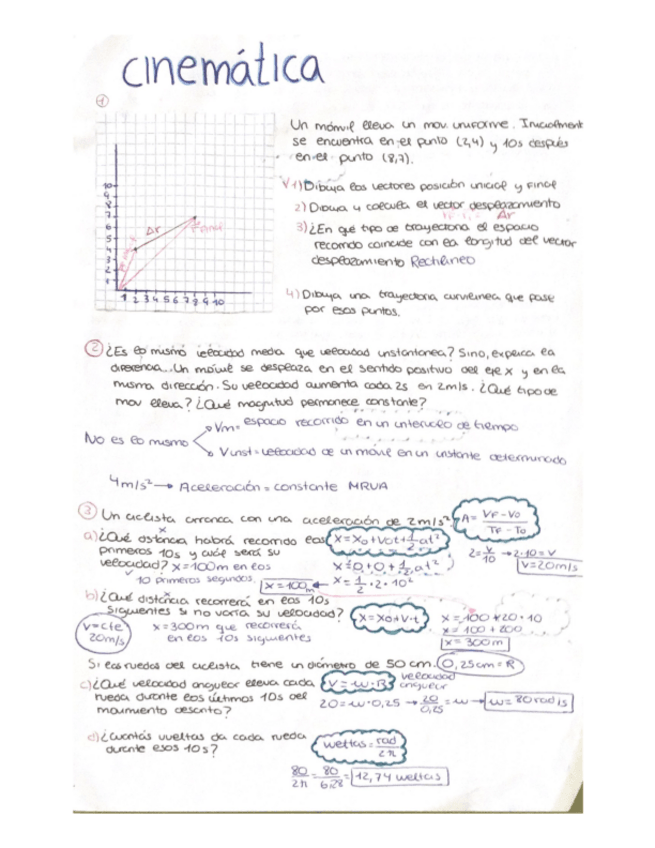 cinemática
1
Un móvil lleva un mov. uniforme. Inicialment
se encuentra en el punto (2,4) y 10s después
en el punto (8,7).
V 1) Dibuja los vectores posición inicial y final
2) Dibuja y calcula el vector desplazamiento
Δr
3) ¿En qué tipo de trayectoria el espacio
recorrido coincide con la longitud del vector
desplazamiento Rectilíneo
4) Dibuja una trayectoria curvilínea que pase
por esos puntos.
10
9
8
7
6
5
4
3
2
1
Δr
r final
1 2 3 4 5 6 7 8 9 10
2 ¿Es lo mismo velocidad media que velocidad instantánea? Sino, explica la
diferencia. Un móvil se desplaza en el sentido positivo del eje X y en la
misma dirección. Su velocidad aumenta cada 2s en 2m/s. ¿Qué tipo de
mov lleva? ¿Qué magnitud permanece constante?
No es lo mismo
Vm= espacio recorrido en un intervalo de tiempo
Vinst= velocidad de un móvil en un instante determinado
4m/s² → Aceleración = constante MRUA
3 Un ciclista arranca con una aceleración de 2m/s²
A = VF - V0 / TF - T0
a) ¿Qué distancia habrá recorrido en los
primeros 10s y cuál será su
velocidad? x=100m en los
10 primeros segundos.
x = x0 + V0t + 1/2 at²
x = 0 + 0 + 1/2 at²
x = 1/2 · 2 · 10²
x = 100m
2 = v/10 → 2·10 = v
v=20m/s
b) ¿Qué distancia recorrerá en los 10s
siguientes si no varía su velocidad?
v=cte
20m/s
x=300m que recorrerá
en los 10s siguientes
x = x0 + v·t
x = 100 + 20 · 10
x = 100 + 200
x = 300m
Si las ruedas del ciclista tiene un diámetro de 50 cm. 0,25cm = R
c) ¿Qué velocidad angular lleva cada
rueda durante los últimos 10s del
movimiento descrito?
V = w · R
velocidad
angular
20 = w · 0,25 → 20/0,25 = w → w = 80 rad/s
d) ¿Cuántas vueltas da cada rueda
durante esos 10s?
vueltas = rad/2π
80/2π = 80/6,28 = 12,74 vueltas